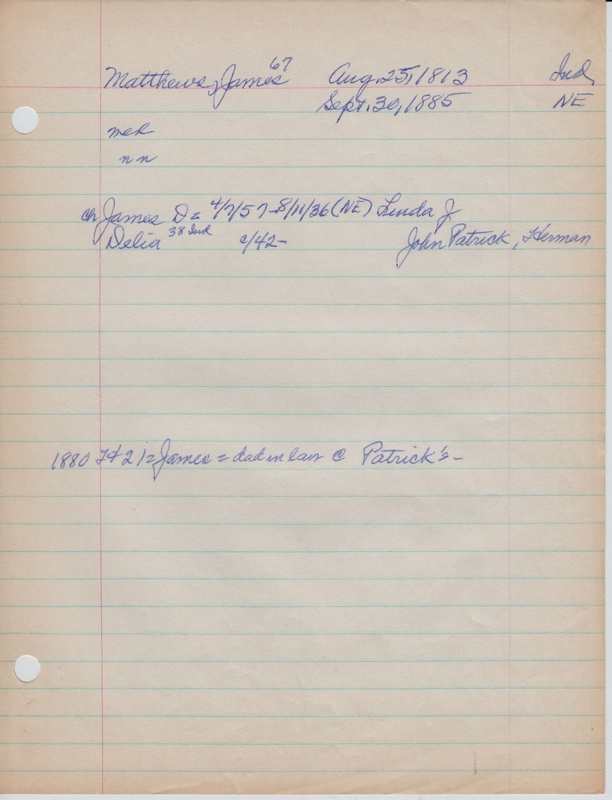 Matthews, James 67 Aug. 25, 1813 Ind,
Sept. 30, 1885 NE
med
n n
ch James D = 4/7/57-8/11/36 (NE) Linda J
Delia 38 Ind c/42- John Patrick, Herman
1880 21 = James = dad in law @ Patrick's -